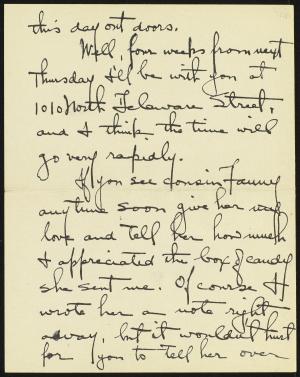 this day out doors.
Well, four weeks from next
Thursday I'll be with you at
1010 North Delaware Street,
and I think the time will
go very rapidly.
If you see Cousin Fanny
anytime soon give her my
love and tell her how much
I appreciated the box of candy
she sent me. Of course I
wrote her a note right
away, but it wouldn't hurt
for you to tell her over